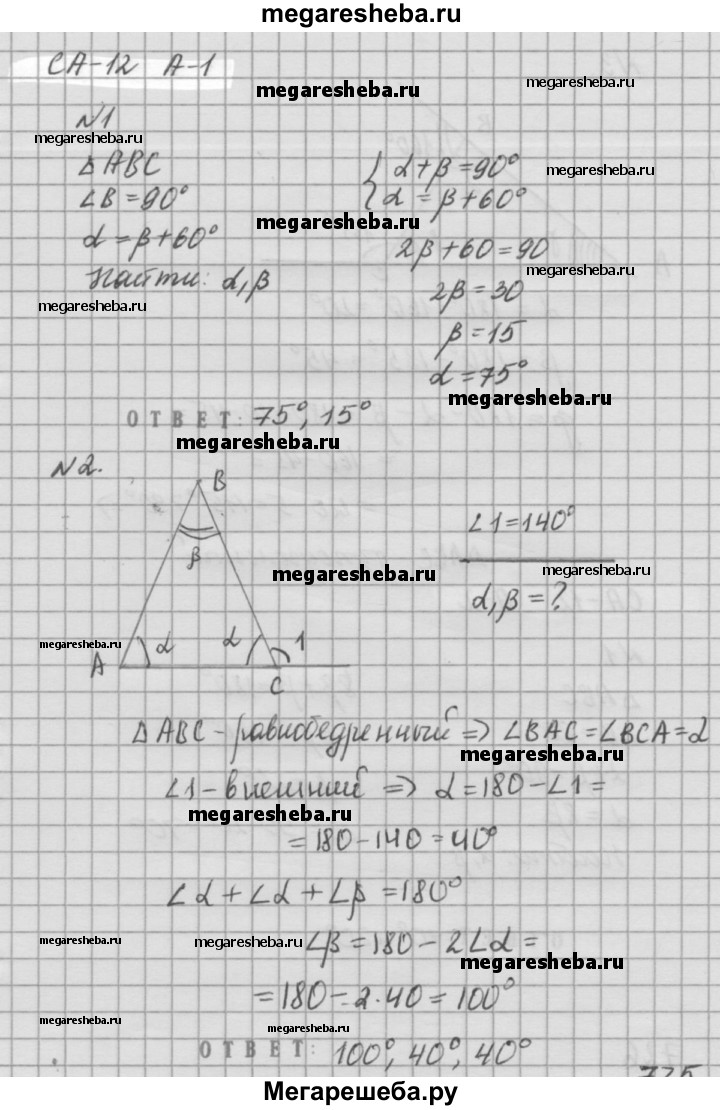 megaresheba.ru
СА-12 А-1
megaresheba.ru
megaresheba.ru
№1
megaresheba.ru
Δ ABC
∠B = 90°
α = β + 60°
Найти: α, β
{ α + β = 90°
α = β + 60°
megaresheba.ru
megaresheba.ru
2β + 60 = 90
megaresheba.ru
2β = 30
megaresheba.ru
β = 15
α = 75°
megaresheba.ru
ОТВЕТ: 75°, 15°
megaresheba.ru
№2.
B
β
∠1 = 140°
megaresheba.ru
megaresheba.ru
α, β = ?
megaresheba.ru
A
α
α
1
C
Δ ABC - равнобедренный ⇒ ∠BAC = ∠BCA = α
megaresheba.ru
megaresheba.ru
∠1 - внешний ⇒ α = 180 - ∠1 =
megaresheba.ru
= 180 - 140 = 40°
∠α + ∠α + ∠β = 180°
megaresheba.ru
megaresheba.ru
∠β = 180 - 2∠α =
megaresheba.ru
= 180 - 2·40 = 100°
megaresheba.ru
ОТВЕТ: 100°, 40°, 40°
Мегарешеба.ру